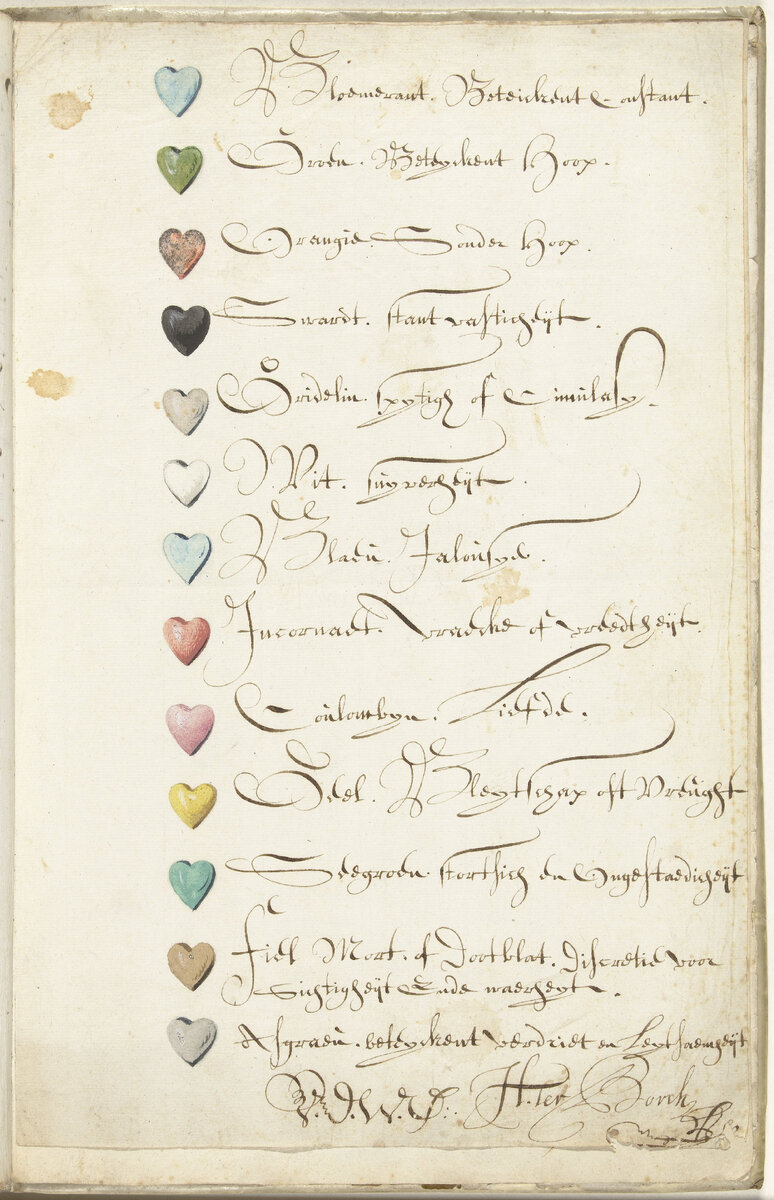 Bloemerant. Beteickent Constant.
Groen. Beteyckent Hoop.
Orangie. Sonder Hoop.
Swardt. stantvasticheÿt.
Gridelin. spytigh of Cimulasy.
Wit. suÿverheÿt.
Blaeŭ. Jaloŭsye.
Incornaet. Wraecke of wreedtheÿt.
Coŭlombyn. Liefde.
Geel. Bleytschap oft Vreŭght
Seegroen. stortsich en Ongestaedicheÿt
fiel Mort. of Dootblat. Discretie voor
Sichtigheÿt Ende waerheyt.
Asgraeŭ. beteyckent verdriet en Leytsaemheÿt
H. ter Borch